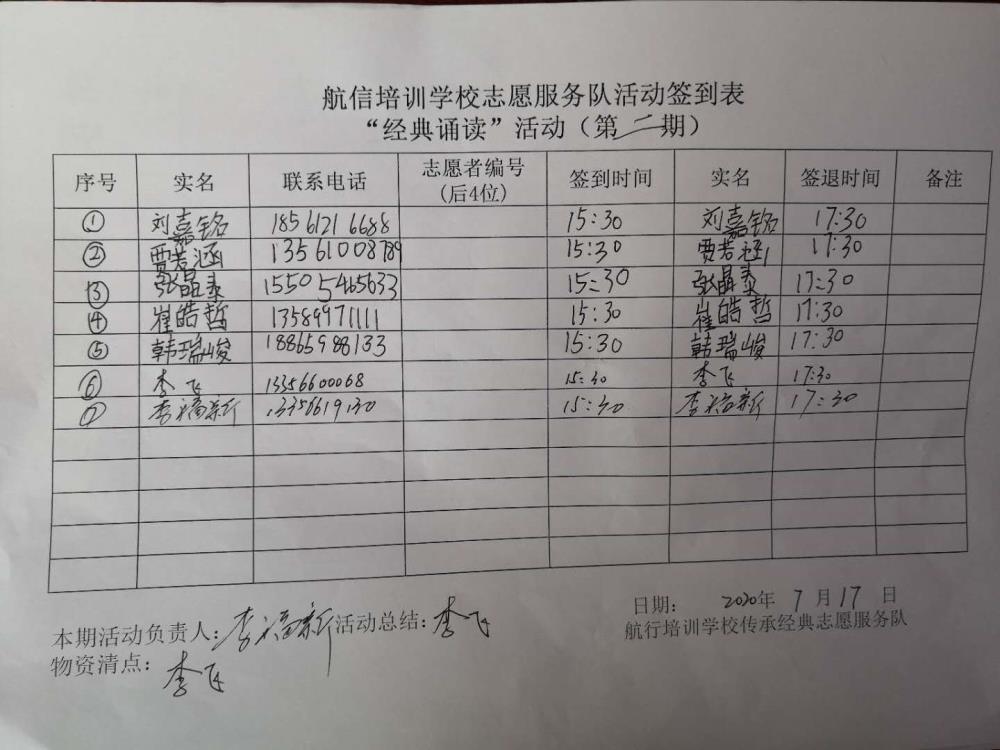 航信培训学校志愿服务队活动签到表
“经典诵读”活动（第二期）
序号 实名 联系电话 志愿者编号(后4位) 签到时间 实名 签退时间 备注
① 刘嘉铭 18561216688 15:30 刘嘉铭 17:30
② 贾若涵 13561008789 15:30 贾若涵 17:30
③ 张晶泰 15505465633 15:30 张晶泰 17:30
④ 崔皓哲 13589971111 15:30 崔皓哲 17:30
⑤ 韩瑞峻 18865988133 15:30 韩瑞峻 17:30
⑥ 李飞 13356600068 15:30 李飞 17:30
⑦ 李福新 15:30 李福新 17:30
本期活动负责人：李福新 活动总结：李飞
物资清点：李飞
日期： 2020年 7 月 17 日
航行培训学校传承经典志愿服务队